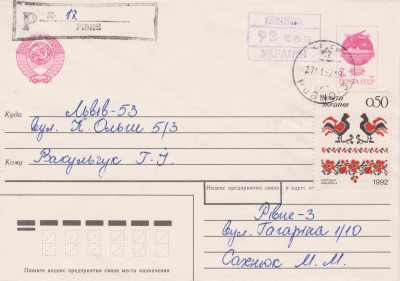 Р № 17
РІВНЕ
93 коп
УКРАЇНИ
ПОЧТА СССР
РОВНО
Куда Львів-53
вул. К. Ольши 5/3
Кому
Г. І.
ПОШТА УКРАЇНИ 0,50
1992
Индекс предприятия связи и адрес
Рівне-3
вул. Гагаріна 1/10
Сахнюк М. М.
Пишите индекс предприятия связи места назначения